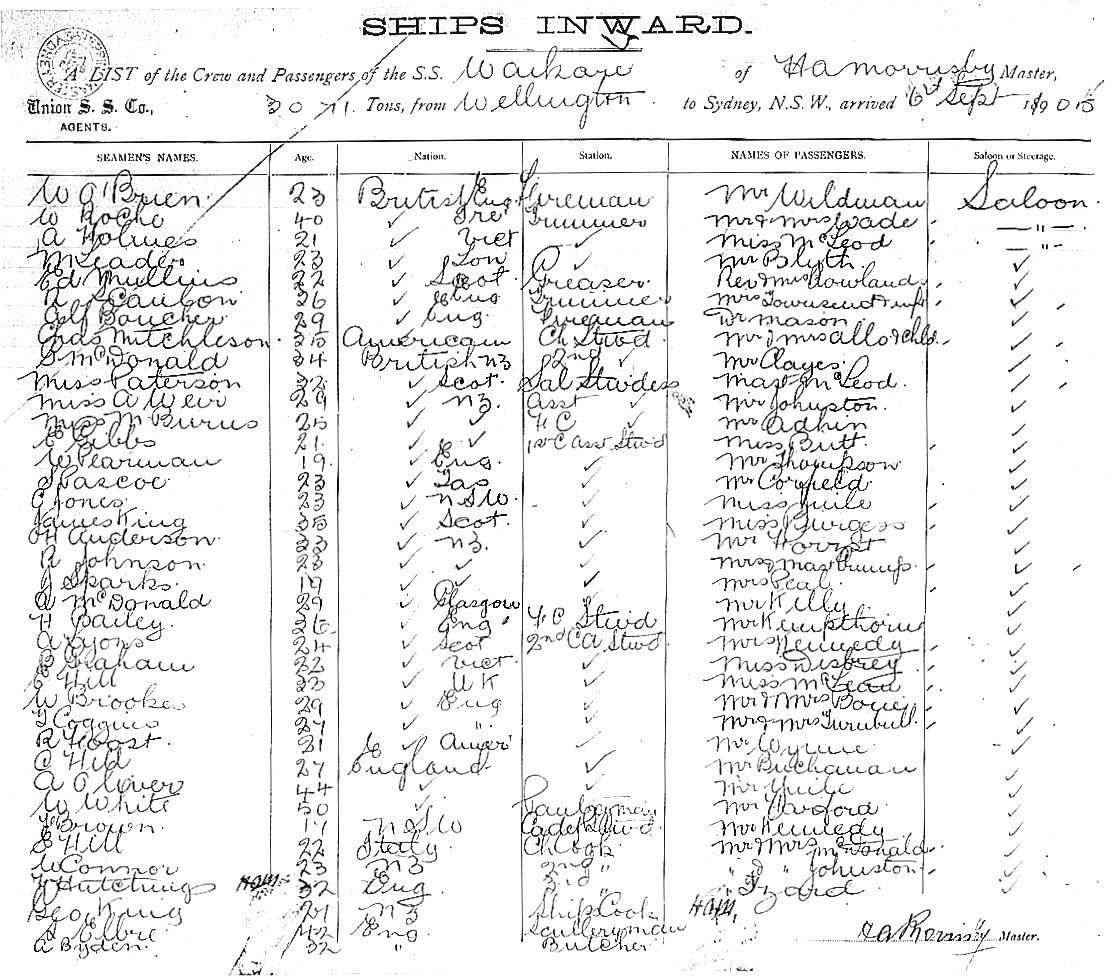 SHIPS INWARD.
A LIST of the Crew and Passengers of the S.S. Waikare of HAMorrisby Master,
Union S. S. Co., 3071 Tons, from Wellington to Sydney, N.S.W., arrived 6th Sept 1905
AGENTS.
SEAMEN'S NAMES. Age. Nation. Station. NAMES OF PASSENGERS. Saloon or Steerage.
W O'Brien 23 British Eng Fireman Mr Wildman Saloon
W Roche 40 ✓ Ire Trimmer Mr & Mrs Wade — " —
A Holmes 21 ✓ Vict ✓ Miss McLeod — " —
M Leader 23 ✓ Lon Mr Blyth ✓
Ed Mullins 22 ✓ Scot Greaser Rev & Mrs Rowland ✓
26 ✓ Eng Trimmer Mrs Townsend & inft ✓
Alf Boucher 29 ✓ Eng. Fireman Dr Mason ✓
Chas Mitchleson 35 American Ch. Stwd Mr & Mrs ✓
D McDonald 34 British NZ 2nd ✓ Mr Clayes ✓
Miss Paterson 32 ✓ Scot. Sal Stwdess Mast McLeod ✓
Miss A Weir 29 ✓ NZ. Asst ✓ Mr Johnston ✓
Miss M Burns 25 ✓ ✓ FC ✓ Mr Adkin ✓
Gibbs 21 ✓ ✓ 1st C Asst Stwd Miss Butt ✓
W Pearman 19 ✓ Eng. ✓ Mr Thompson ✓
Pascoe 23 ✓ Tas ✓ Mr Corfield ✓
C Jones 23 ✓ NSW. ✓ Miss Yuile ✓
James King 35 ✓ Scot. ✓ Miss Burgess ✓
H Anderson 33 ✓ NZ. ✓ Mr ✓
R Johnson 28 ✓ ✓ ✓ ✓
J Sparks 19 ✓ ✓ ✓ Mrs ✓
A McDonald 29 ✓ Glasgow Mr Kelly ✓
H Bailey ✓ Eng FC Stwd Mr Kempthorne ✓
A Lyons 24 ✓ Scot 2nd CA Stwd Mrs Kennedy ✓
Graham 22 ✓ Vict ✓ Miss Disbrey ✓
E Hill 23 ✓ UK ✓ Miss McLean ✓
W Brookes 29 ✓ Eng ✓ Mr & Mrs ✓
Coggins 27 ✓ " ✓ Mr & Mrs Turnbull ✓
R Hoast 21 ✓ Amer ✓ Mr Wynne ✓
C Hild 27 England ✓ Mr Buchanan ✓
A Oliver 44 ✓ Mr Yuile ✓
W White 50 ✓ Mr ✓
Brown 17 NSW Cadet Stwd Mr Kennedy ✓
E Hill 22 Italy Ch Cook Mr & Mrs McDonald ✓
Connor 23 NZ 2nd " " " Johnston ✓
Hutchings HAM. 32 Eng 3rd " " Izard ✓
Geo King 21 NZ Ships Cook HAM.
42 Eng Sculleryman
A Byden 32 " Butcher HAMorrisby Master.